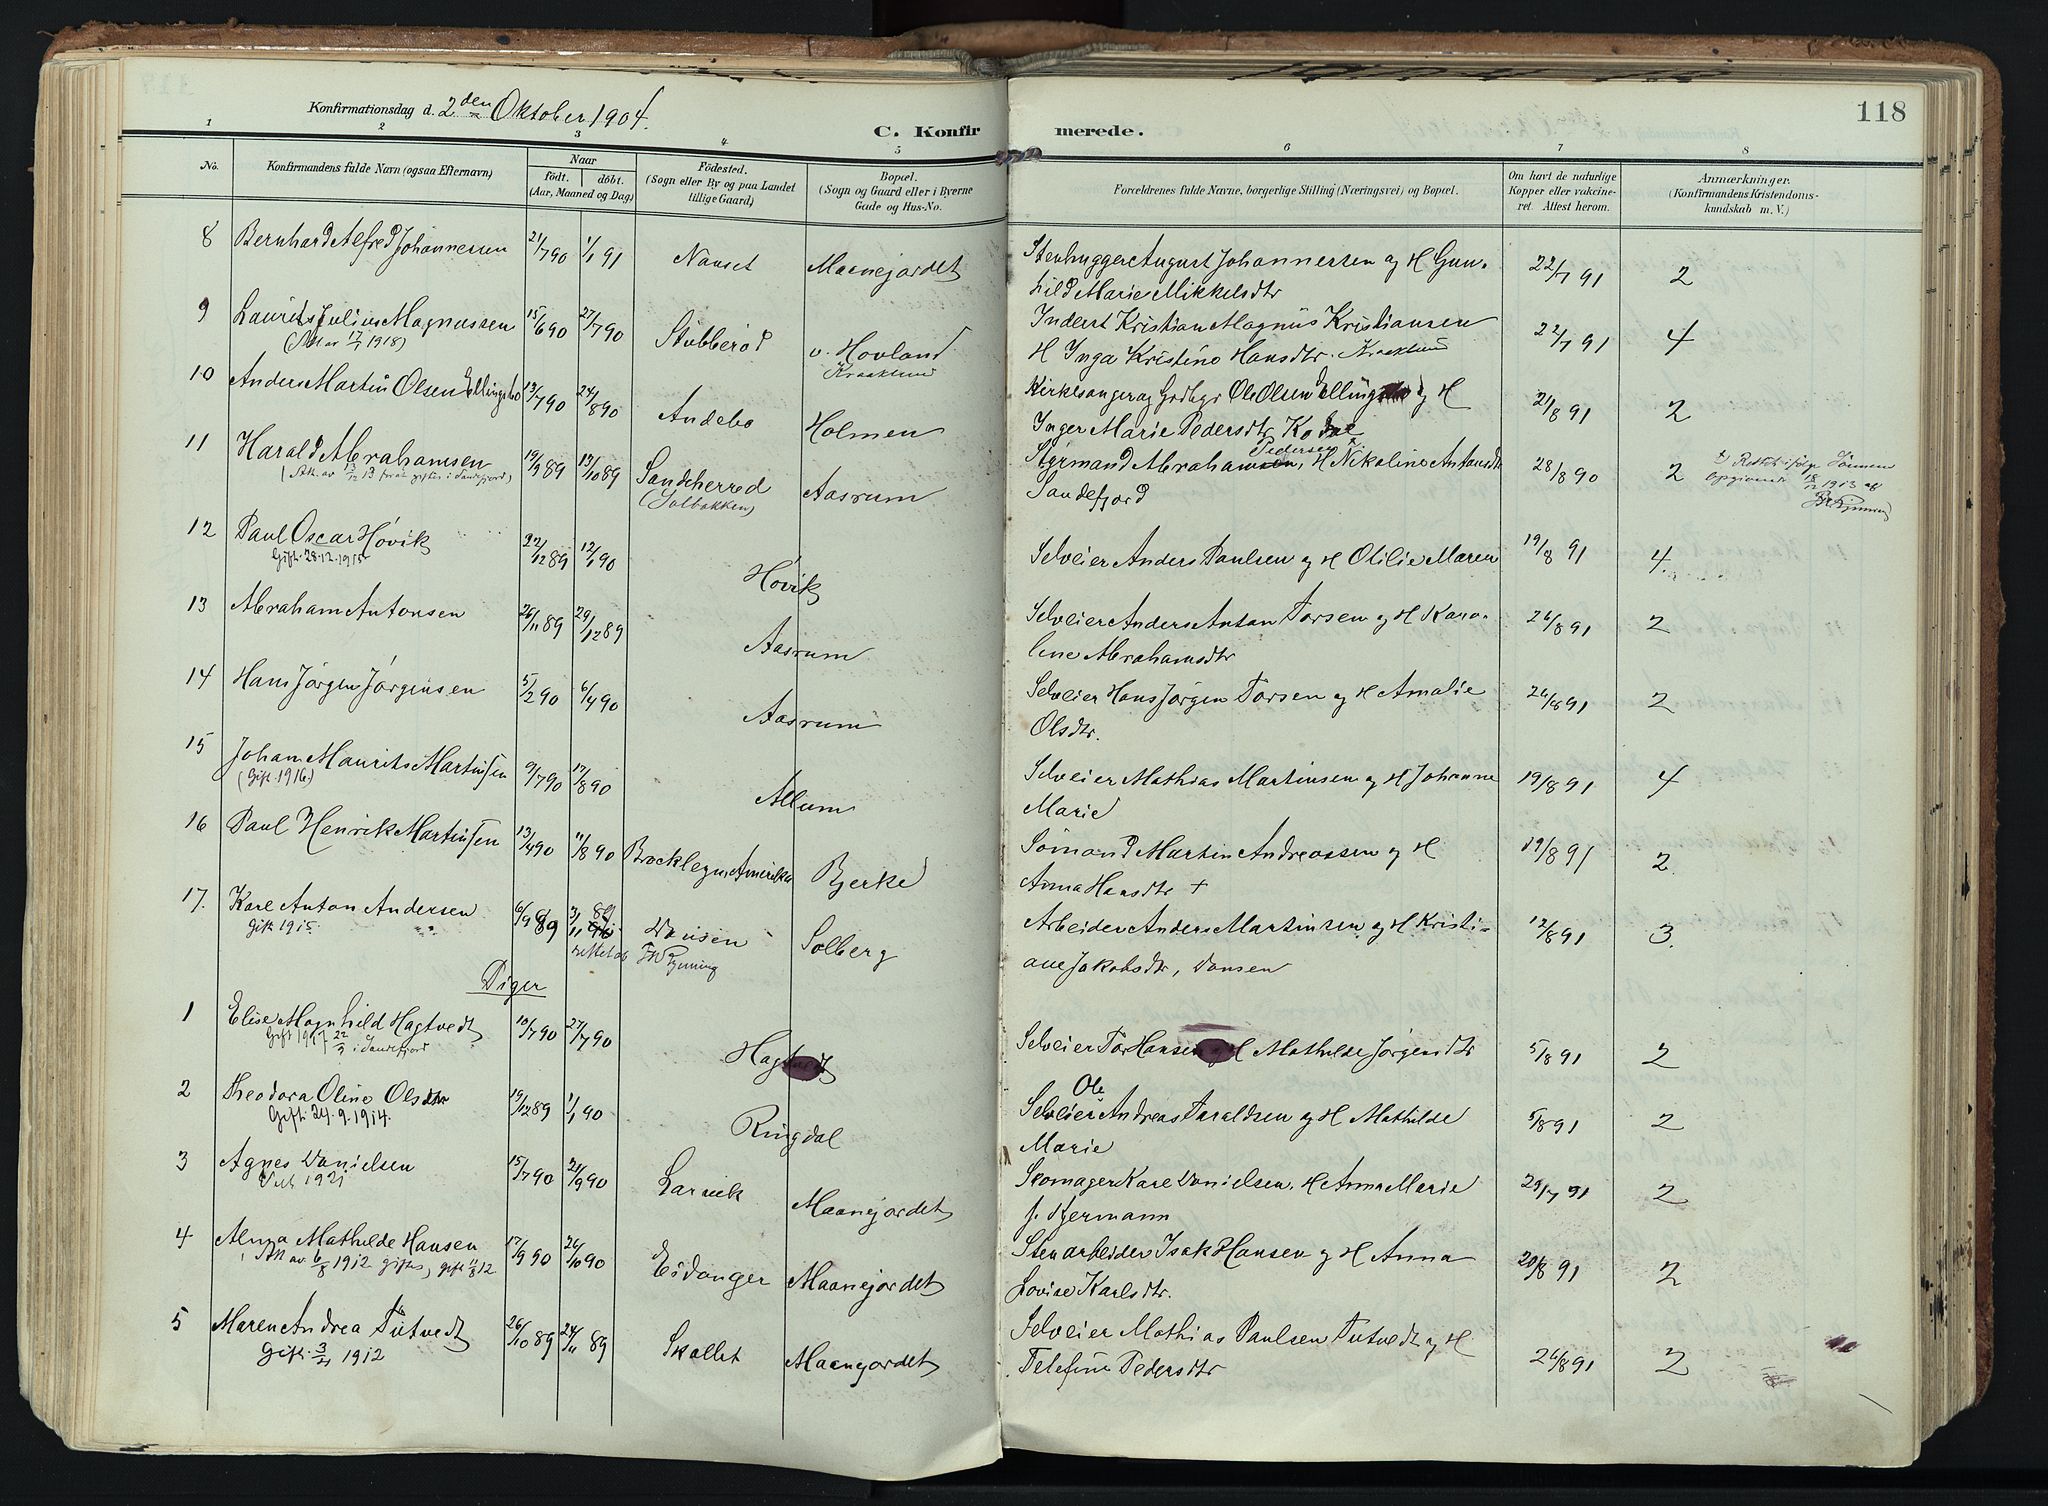 118
Konfirmationsdag d. 2den Oktober 1904.
C. Konfirmerede.
1 2 3 4 5 6 7 8
No.
Konfirmandens fulde Navn (ogsaa Efternavn)
Naar
födt. döbt.
(Aar, Maaned og Dag)
Födested.
(Sogn eller By og paa Landet
tillige Gaard)
Bopæl.
(Sogn og Gaard eller i Byerne
Gade og Hus-No.
Forældrenes fulde Navne, borgerlige Stilling (Næringsvei) og Bopæl.
Om havt de naturlige
Kopper eller vakcine-
ret. Attest herom.
Anmærkninger.
(Konfirmandens Kristendoms-
kundskab m. V.)
8 Bernhard Alfred Johannessen 21/7 90 1/1 91 Nanset Maanejordet Stenhugger August Johannessen og H Gun-
hild Marie Mikkelsdtr 22/7 91 2
9 Laurits Julius Magnussen 15/6 90 27/7 90 Stubberöd v. Hovland Inderst Kristian Magnus Kristiansen
1918) H Inga Kristine Hansdtr. 22/7 91 4
10 Anders Martin Olsen Ellingsbo 13/7 90 24/8 90 Andebo Holmen Kirkesanger og Grdbgr Ole Olsen og H
Inger Marie Pedersdtr Kodal 21/8 91 2
11 Harald Abrahamsen 19/9 89 13/10 89 Sandeherred Aasrum Sjömand Abrahamsen, Pedersen H Nikoline Antonsdtr
(Att. av 13/12 13 for at giftes i Sandefjord) (Solbakken) Sandefjord 28/8 90 2
12 Paul Oscar Hövik 22/12 89 12/1 90 Hövik Selveier Anders Paulsen og H Otilie Maren 19/8 91 4.
Gift 28.12.1915
13 Abraham Antonsen 26/11 89 29/12 89 Aasrum Selveier Anders Anton Torsen og H Karo-
line Abrahamsdtr 26/8 91 2
14 Hans Jörgen Jörgensen 5/2 90 6/4 90 Aasrum Selveier Hans Jörgen Torsen og H Amalie
Olsdtr. 26/8 91 2
15 Johan Maurits Martinsen 9/7 90 17/8 90 Allum Selveier Mathias Martinsen og H Johanne
(Gift 1916) Marie 19/8 91 4
16 Paul Henrik Martinsen 13/4 90 11/8 90 Brocklegn. Amerika Bjerke Sömand Martin Andreassen og H
Anna Hansdtr + 19/8 91 2.
17. Karl Anton Andersen 6/9 89 3/11 89 Solberg Arbeider Anders Martinsen og H Kristi-
Gift 1915 rettet ane Jakobsdtr, 12/8 91 3.
Piger
1 Elise Magnhild Hagtvedt 10/7 90 27/7 90 Hagtvedt Selveier Tor Hansen og H Mathilde Jörgensdtr 5/8 91 2
i Sandefjord
2 Theodora Oline Olsdtr 19/12 89 1/1 90 Ringdal Selveier Ole Andreas Taraldsen og H Mathilde
Gift 24.9.1914. Marie 5/8 91 2
3 Agnes Danielsen 15/7 90 21/9 90 Larvik Maanejordet Skomager Karl Danielsen, H Anna Marie
1921 f. Bjermann 29/7 91 2
4 Alma Mathilde Hansen 17/9 90 26/10 90 Eidanger Maanejordet Stenarbeider Isak Hansen og H Anna
Att av 6/8 1912 giftes, gift 11/8 12 Lovise Karlsdtr. 20/8 91 2
5 Maren Andrea Tutvedt 26/10 89 24/11 89 Skallet Maanejordet Selveier Mathias Paulsen Tutvedt og H
Gift 3/11 1912 Telefine Pedersdtr 26/8 91 2